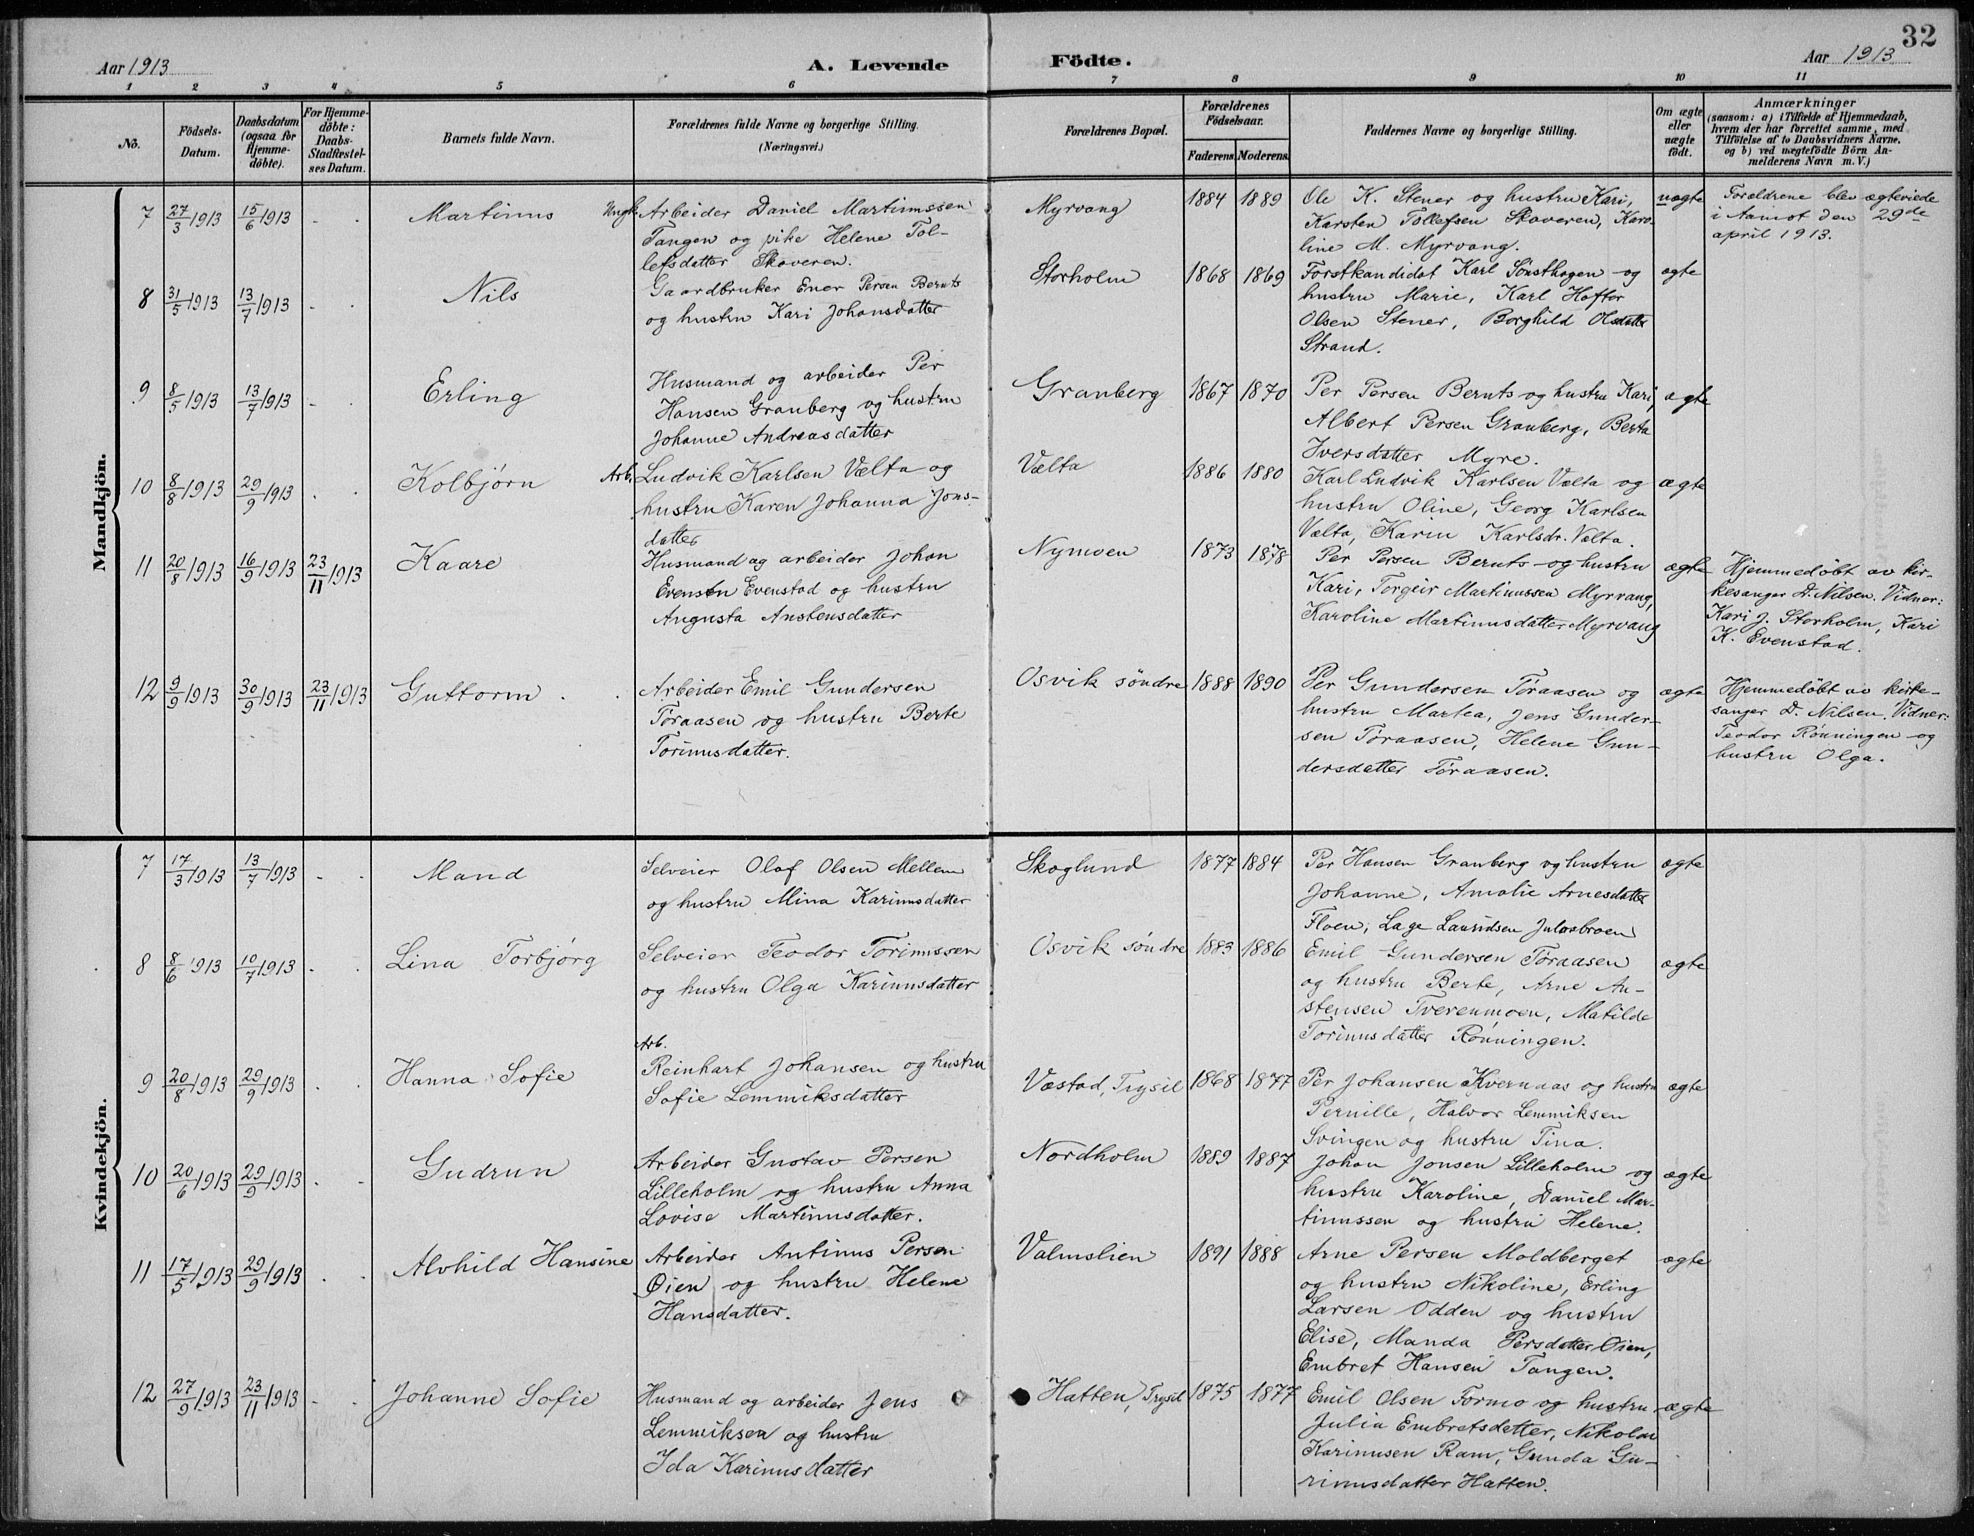 32
Aar 1913
A. Levende
Födte.
Aar 1913
1 2 3 4 5 6 7 8 9 10 11
No.
Födsels-
Datum.
Daabsdatum
(ogsaa for
Hjemme-
döbte).
For Hjemme-
döbte:
Daabs-
Stadfæstel-
ses Datum.
Barnets fulde Navn.
Forældrenes fulde Navne og borgerlige Stilling.
(Næringsvei.)
Forældrenes Bopæl.
Forældrenes
Födselsaar.
Faderens. Moderens.
Faddernes Navne og borgerlige Stilling.
Om ægte
eller
uægte
födt.
Anmærkninger
(saasom: a) i Tilfælde af Hjemmedaab,
hvem der har forrettet samme, med
Tilföielse af to Daabsvidners Navne.
og b) ved uægtefödte Börn An-
melderens Navn m. V.)
Mandkjön.
7 27/3 1913 15/6 1913 - - Martinus
Ungk. Arbeider Daniel Martinussen
Tangen og pike Helene Tol-
lefsdatter Skaveren.
Myrvang 1884 1889
Ole K. Stener og hustru Kari,
Karsten Tollefsen Skaveren, Karo-
line M. Myrvang.
uægte
Foreldrene blev ægteviede
i Aamot den 29de
april 1913.
8 31/5 1913 13/7 1913 - - Nils
Gaardbruker Ener Persen Bernts
og hustru Kari Johansdatter
Storholm 1868 1869
Forstkandidat Karl Sønsthagen og
hustru Marie, Karl Haftor
Olsen Stener, Borghild Olsdatter
Strand.
ægte
9 8/5 1913 13/7 1913 - - Erling
Husmand og arbeider Per
Hansen Granberg og hustru
Johanne Andreasdatter
Granberg 1867 1870
Per Persen Bernts og hustru Kari,
Albert Persen Granberg, Berta
Iversdatter Myre.
ægte
10 8/8 1913 29/9 1913 - - Kolbjørn
Arb. Ludvik Karlsen Vælta og
hustru Karen Johanna Jons-
datter
Vælta 1886 1880
Karl Ludvik Karlsen Vælta og
hustru Oline, Georg Karlsen
Vælta, Karin Karlsdr. Vælta.
ægte
11 20/8 1913 16/9 1913 23/11 1913 Kaare
Husmand og arbeider Johan
Evensen Evenstad og hustru
Augusta Anstensdatter
Nymoen 1873 1878
Per Persen Bernts og hustru
Kari, Torgeir Martinussen Myrvang,
Karoline Martinusdatter Myrvang
ægte
Hjemmedøbt av kir-
kesanger D. Nilsen. Vidner:
Kari J. Storholm, Kari
K. Evenstad.
12 9/9 1913 30/9 1913 23/11 1913 Guttorm
Arbeider Emil Gundersen
Tøraasen og hustru Berte
Torinusdatter.
Osvik søndre 1888 1890
Per Gundersen Tøraasen og
hustru Martea, Jens Gunder-
sen Tøraasen, Helene Gun-
dersdatter Tøraasen.
ægte
Hjemmedøbt av kirke-
sanger D. Nilsen. Vidner:
Teodor Rønningen og
hustru Olga.
Kvindekjön.
7 17/3 1913 13/7 1913 - - Mand
Selveier Olaf Olsen Mellem
og hustru Mina Karinusdatter
Skoglund 1877 1884
Per Hansen Granberg og hustru
Johanne, Amalie Arnesdatter
Floen, Lage Lauridsen Julosbroen
ægte
8 8/6 1913 10/7 1913 - - Lina Torbjørg
Selveier Teodor Torinussen
og hustru Olga Karinusdatter
Osvik søndre 1883 1886
Emil Gundersen Tøraasen
og hustru Berte, Arne An-
stensen Tverenmoen, Matilde
Torinusdatter Rønningen.
ægte
9 20/8 1913 29/9 1913 - - Hanna Sofie
Arb.
Reinhart Johansen og hustru
Sofie Lemmiksdatter
Væstad, Trysil 1868 1877
Per Johansen Kvernaas og hustru
Pernille, Halvor Lemmiksen
Svingen og hustru Tina.
ægte
10 20/6 1913 29/9 1913 - - Gudrun
Arbeider Gustav Persen
Lilleholm og hustru Anna
Lovise Martinusdatter.
Nordholm 1889 1887
Johan Jonsen Lilleholm og
hustru Karoline, Daniel Mar-
tinussen og hustru Helene.
ægte
11 17/5 1913 29/9 1913 - - Alvhild Hansine
Arbeider Antinus Persen
Øien og hustru Helene
Hansdatter.
Valmslien 1891 1888
Arne Persen Moldberget
og hustru Nikoline, Erling
Larsen Odden og hustru
Elise, Manda Persdatter Øien,
Embret Hansen Tangen.
ægte
12 27/9 1913 23/11 1913 - - Johanne Sofie
Husmand og arbeider Jens
Lemmiksen og hustru
Ida Karinusdatter
Hatten, Trysil 1875 1877
Emil Olsen Formo og hustru
Julia Embretsdatter, Nikolai
Karinusen Ram, Gunda Gu-
rinusdatter Hatten.
ægte